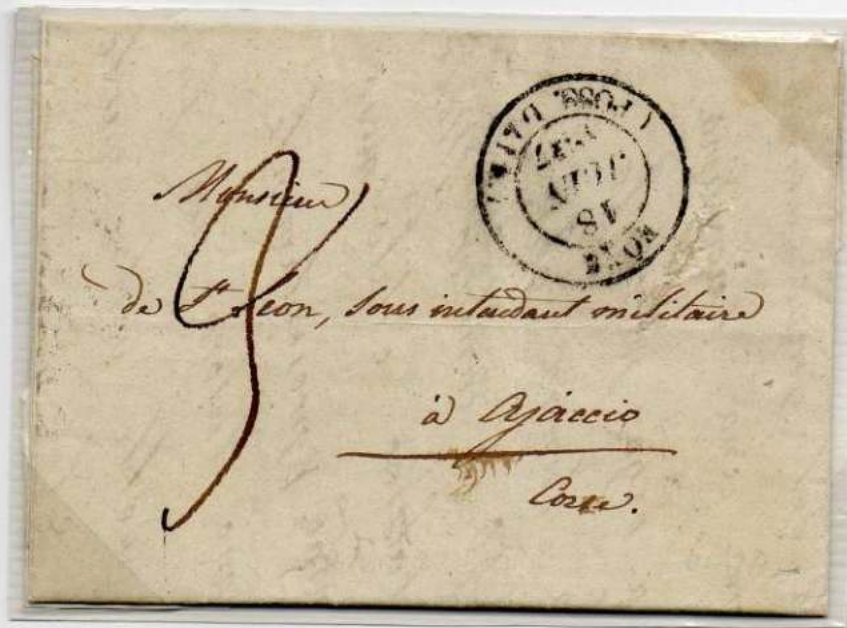 Monsieur
de St Leon, sous intendant militaire
à Ajaccio
Corse.
BONE
18